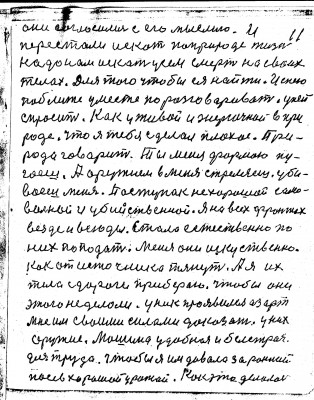 они согласились с его мыслию. И 11
перестали искат по природе жизн
на доколи искат усем смерт на своих
телах. Для того чтобы ея найти. И ено
поближе уместе поразговариват. у ней
спросит. Как у живой и энергичной в при
роде. что я тебя сделал плохое. При-
рода говарит. Ти меня формою пу-
гаеш. А оружием в меня стреляеш. уби-
ваеш меня. Поступак нехароший само-
вольной и убийственной. Я на всех фронтах
везде и всюды. Стала естественно по
них попадат. Меня они искуственно.
Как от источника тянут. А я их
тела з дороги прибераю. чтобы они
этого неделали. у них проявился азарт
мне им своими силами доказат. у них
оружие. Машина удобная и быстрая.
для труда. чтобы я им давала за ранний
посев харошой урожай. Как это делалос